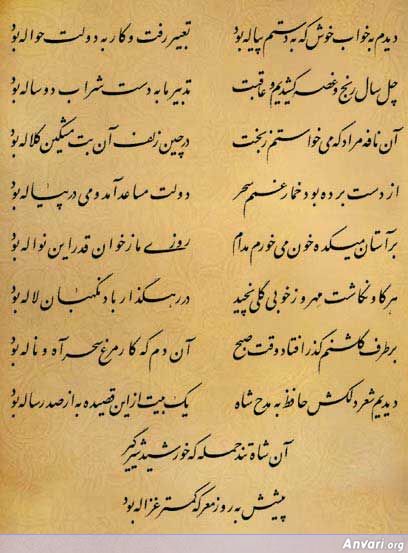 دیدم به خواب خوش که به دستم پیاله بود تعبیر رفت و کار به دولت حواله بود
چل سال رنج و غصه کشیدیم و عاقبت تدبیر ما به دست شراب دو ساله بود
آن نافه مراد که می خواستم ز بخت در چین زلف آن بت مشکین کلاله بود
از دست برده بود خمار غمم سحر دولت مساعد آمد و می در پیاله بود
بر آستان میکده خون می خورم مدام روزی ما ز خوان قدر این نواله بود
هر کاو نکاشت مهر و ز خوبی گلی نچید در رهگذار باد نگهبان لاله بود
بر طرف گلشنم گذر افتاد وقت صبح آن دم که کار مرغ سحر آه و ناله بود
دیدیم شعر دلکش حافظ به مدح شاه یک بیت از این قصیده به از صد رساله بود
آن شاه تند حمله که خورشید شیرگیر
پیشش به روز معرکه کمتر غزاله بود
Anvari.org